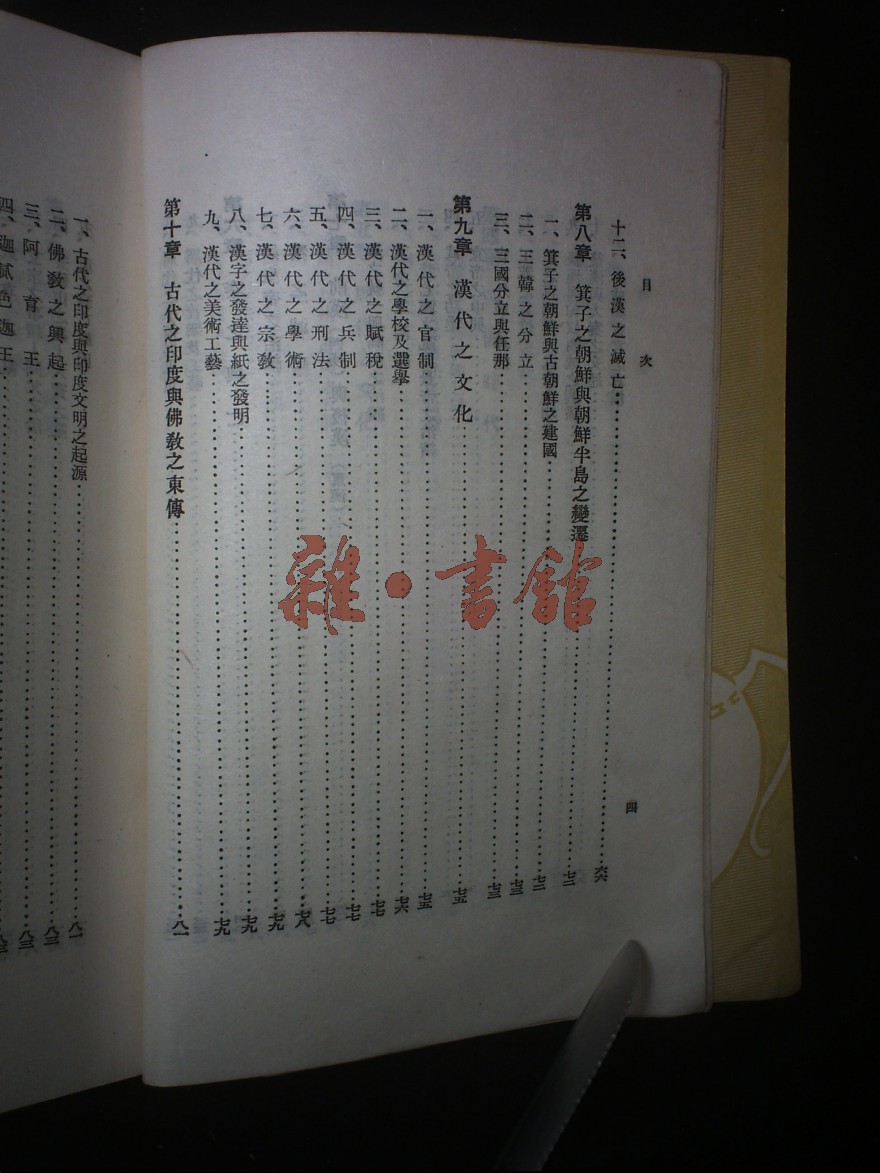 目次
四
十二、後漢之滅亡……六六
第八章 箕子之朝鮮與朝鮮半島之變遷……七二
一、箕子之朝鮮與古朝鮮之建國……七二
二、三韓之分立……七三
三、三國分立與任那……七三
第九章 漢代之文化……七五
一、漢代之官制……七五
二、漢代之學校及選擧……七六
三、漢代之賦稅……七七
四、漢代之兵制……七七
五、漢代之刑法……七七
六、漢代之學術……七八
七、漢代之宗教……七九
八、漢字之發達與紙之發明……七九
九、漢代之美術工藝……七九
第十章 古代之印度與佛教之東傳……八一
一、古代之印度與印度文明之起源……八一
二、佛教之興起……八三
三、阿育王……八三
四、迦膩色迦王……八三
雜·書館